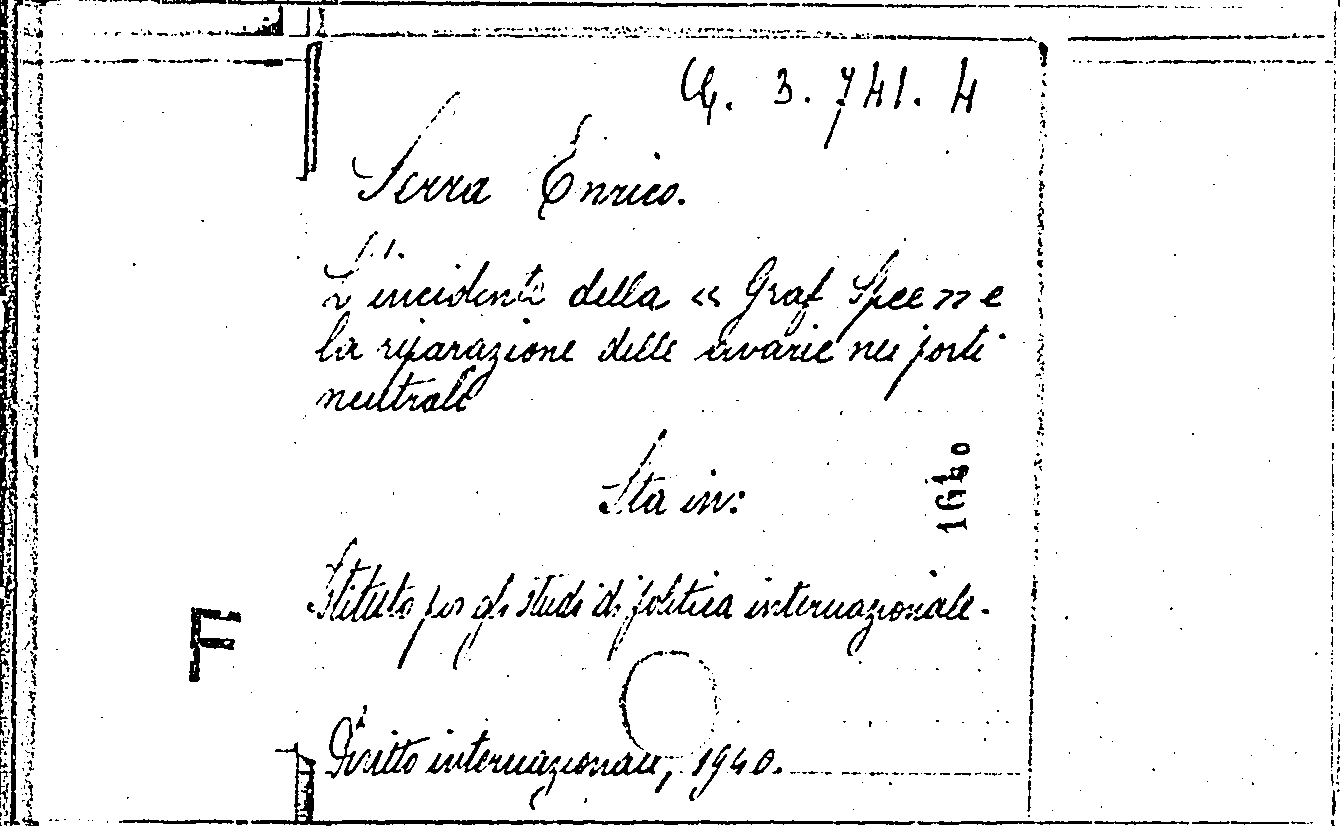 G. 3. 741. 4
Serra Enrico.
L'incidente della « Graf Spee » e
la riparazione delle avarie nei porti
neutrali
Sta in:
1640
Istituto per gli studi di politica internazionale.
F
Diritto internazionale, 1940.